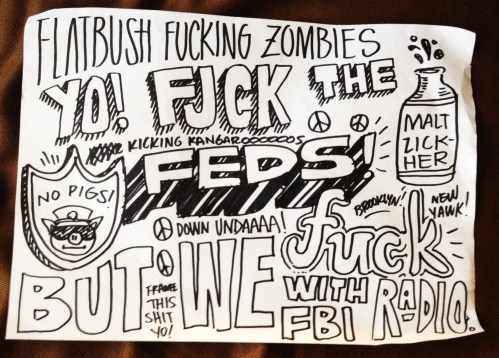 FLATBUSH FUCKING ZOMBIES
YO! FUCK THE
KICKING KANGAROOOOCOS
FEDS!
MALT
LICK-
HER
NO PIGS!
DOWN UNDAAAA!
BROOKLYN!
NEW
YAWK!
BUT WE fuck
FRAME
THIS
SHIT
YO!
WITH
FBI RADIO.